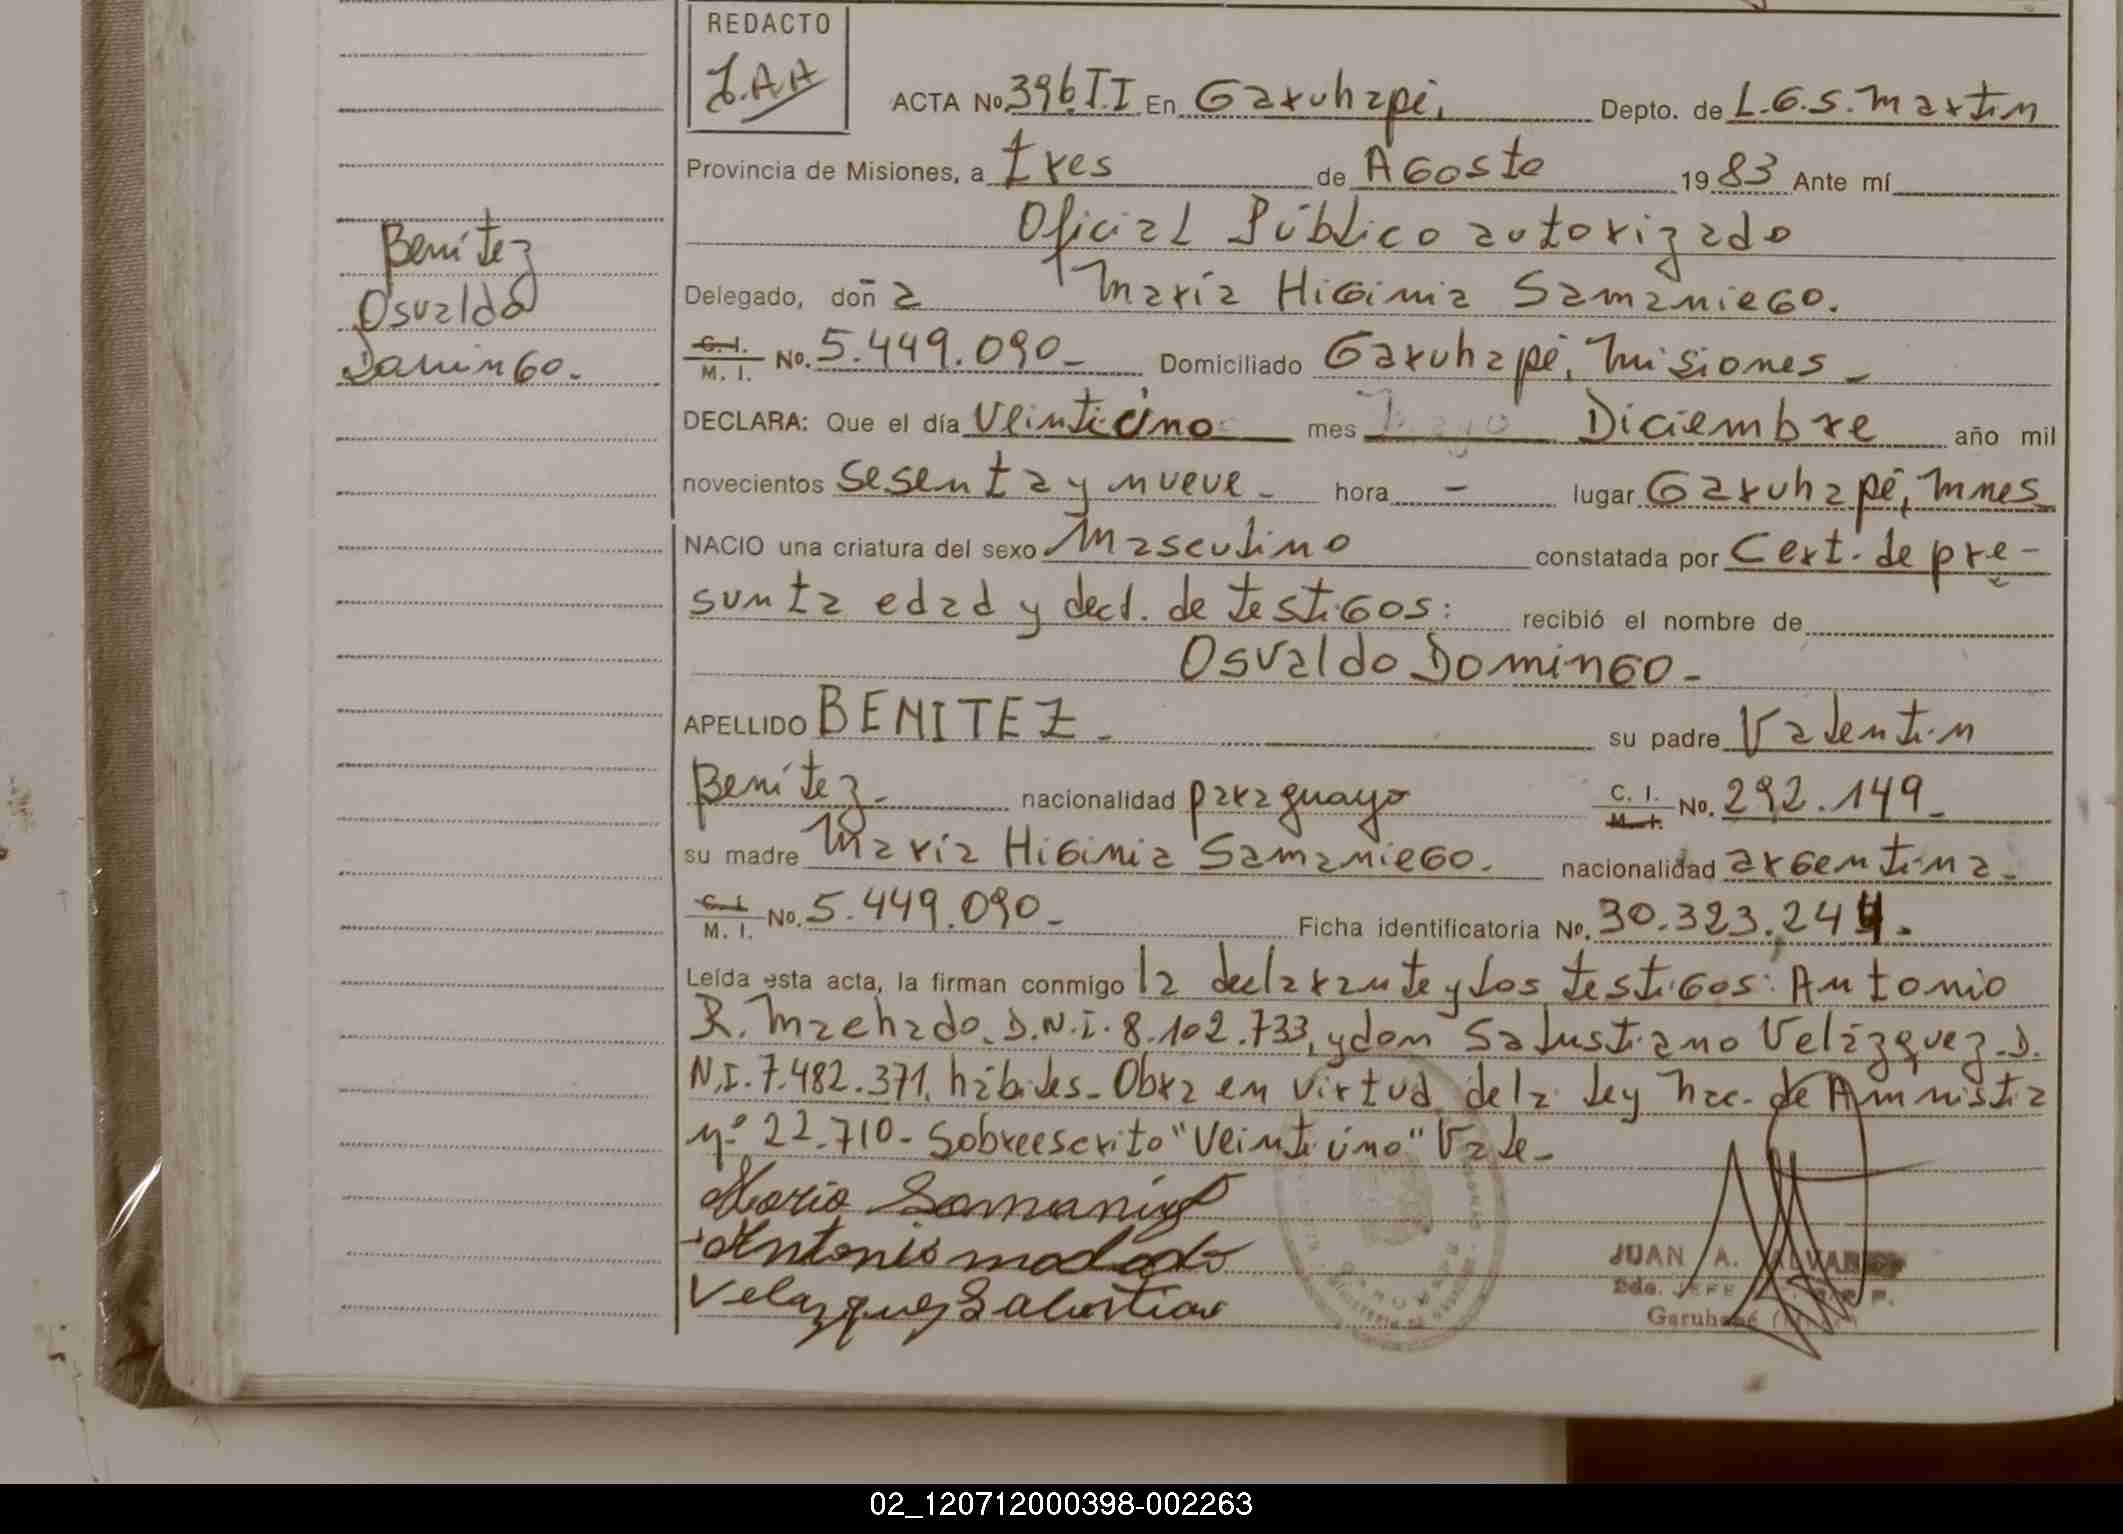 REDACTO
J.A.A
ACTA No. 396.T.I En Garuhapé, Depto. de L.G.S. Martin
Provincia de Misiones, a tres de Agosto 1983 Ante mí
Oficial Público autorizado
Delegado, doña María Higinia Samaniego.
C. I. M. I. No. 5.449.090_ Domiciliado Garuhapé, Misiones_
DECLARA: Que el día Veintiúno mes Mayo Diciembre año mil
novecientos sesenta y nueve_ hora - lugar Garuhapé, Mnes
NACIO una criatura del sexo Masculino constatada por Cert. de pre-
sunta edad y decl. de testigos: recibió el nombre de
Osvaldo Domingo_
APELLIDO BENITEZ_ su padre Valentin
Benítez_ nacionalidad paraguayo C. I. M. I. No. 292.149_
su madre María Higinia Samaniego. nacionalidad argentina_
C. I. M. I. No. 5.449.090_ Ficha identificatoria No. 30.323.244.
Leída esta acta, la firman conmigo la declarante y los testigos: Antonio
R. Machado. D.N.I. 8.102.733, y don Salustiano Velázquez_D.
N.I. 7.482.371. hábiles_ Obra en virtud de la ley Nac. de Amnistia
nº 22.710_ Sobreescrito "Veintiúno" Vale_
Maria Samaniego
Antonio Machado
Velazquez Salustiano
JUAN A. ALVAREZ
2do. JEFE
Garuhapé
Benítez
Osvaldo
Domingo.
02_120712000398-002263